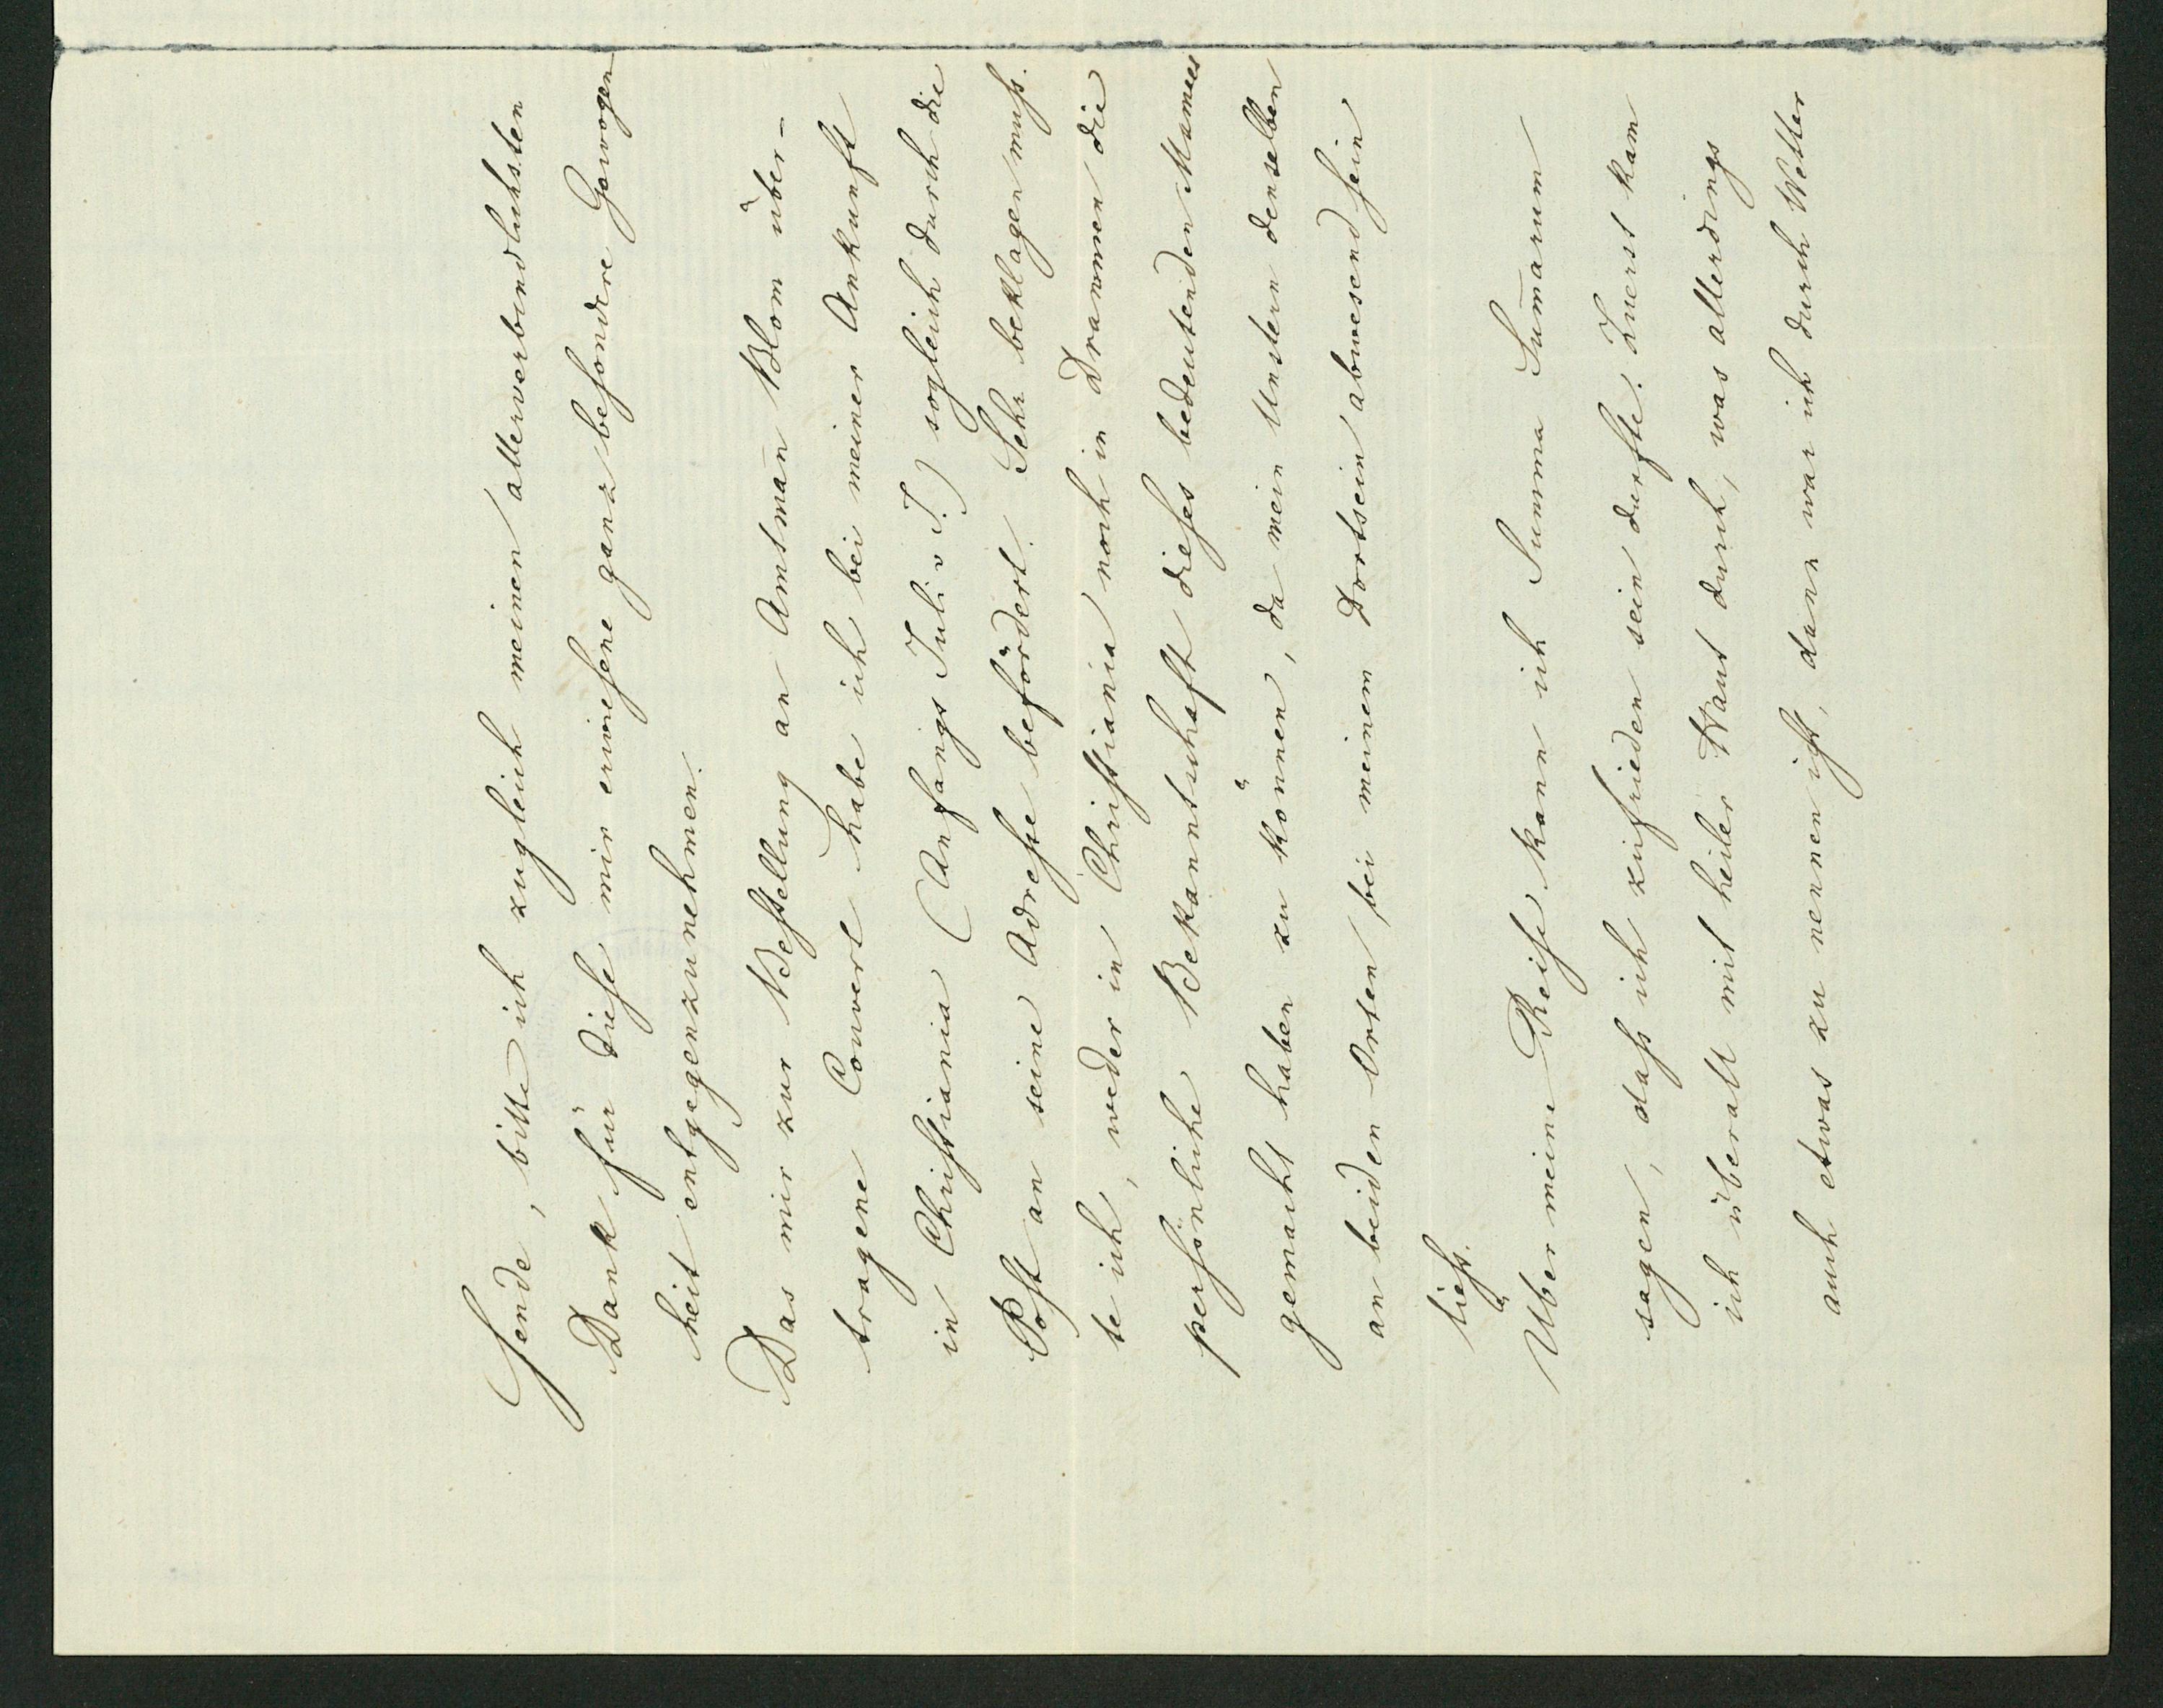 sende, bitte ich zugleich meinen allerverbindlichsten
Dank für diese mir erwiesene ganz besondere Gewogen
heit entgegenzunehmen.
Das mir zur Bestellung an Amtman̄ Blom über-
tragene Convert habe ich bei meiner Ankunft
in Christiania (Anfangs Juli v. J.) sogleich durch die
Post an seine Adresse befördert. Sehr beklagen muss
te ich, weder in Christiania noch in Drammen die
persönliche Bekanntschaft dieses bedeutenden Mannes
gemacht haben zu können, da mein Unstern denselben
an beiden Orten bei meinem Dortsein abwesend sein
liess.
Über meine Reise kann ich Summa Sum̄arum
sagen, dass ich zufrieden sein durfte. Zuerst kam
ich überall mit heiler Haut durch, was allerdings
auch etwas zu nennen ist, dann war ich durch Wetter